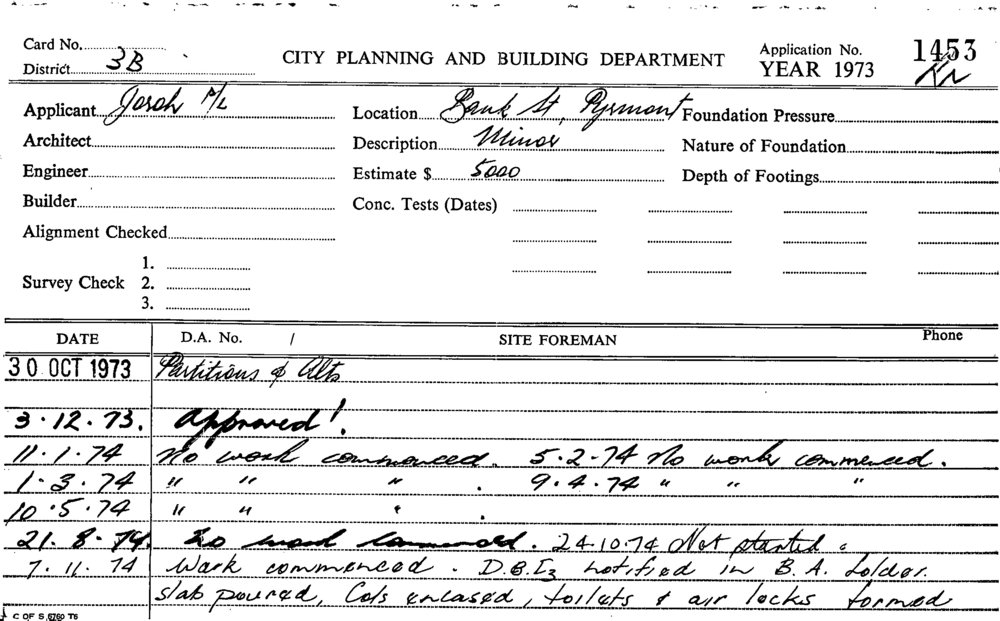 Card No.
District 3B
CITY PLANNING AND BUILDING DEPARTMENT
Application No. 1453
YEAR 1973
Applicant Josoh P/L
Location Bank St, Pyrmont
Foundation Pressure
Architect
Description Minor
Nature of Foundation
Engineer
Estimate $ 5000
Depth of Footings
Builder
Conc. Tests (Dates)
Alignment Checked
Survey Check 1.
2.
3.
DATE D.A. No. / SITE FOREMAN Phone
30 OCT 1973 Partitions & Alts
3.12.73. Approved!
11.1.74 No work commenced. 5.2.74 No works commenced.
1.3.74 " " " . 9.4.74 " " "
10.5.74 " " " .
21.8.74. No work commenced. 24.10.74 Not started.
7.11.74 Work commenced. D.B.I3 notified in B.A. folder.
slab poured, Cols encased, toilets & air locks formed
C OF S 6760 T6